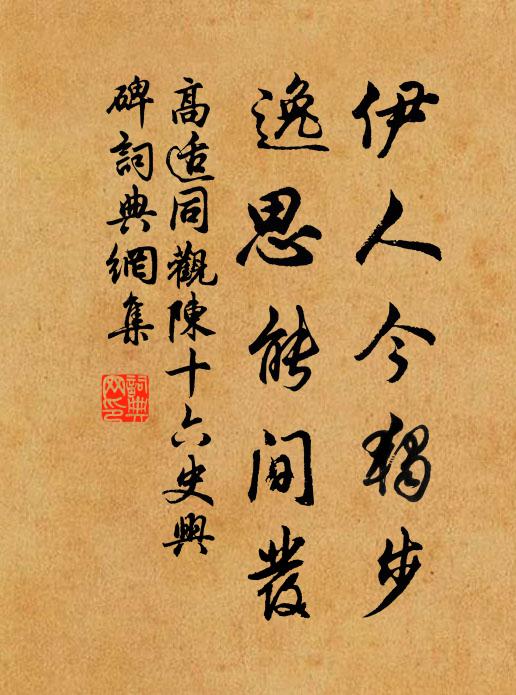 伊人今獨步
逸思能間發
高适同觀陳十六史興
碑詞典網集
詞典网印